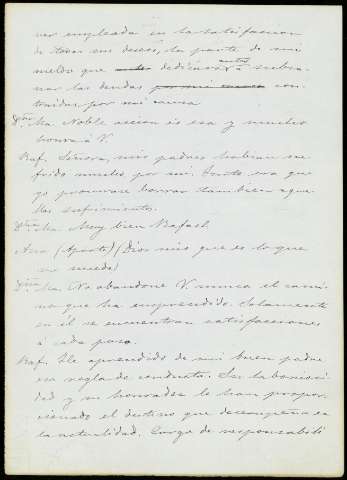 ver empleada en la satisfaccion
de todos sus deseos, la parte de mi
sueldo que dedicaba antes a subsa-
nar las deudas por mi causa con-
traidas por mi causa
Dña Ma. Noble accion es esa y mucho
honra á V.
Raf. Señora, mis padres habian su-
frido mucho por mi. Justo era que
yo procurase borrar tambien aque-
llos sufrimientos.
Dña Ma Muy bien Rafael
Ana (Aparte) (Dios mio que es lo que
me sucede)
Dña Ma. No abandone V. nunca el cami-
no que ha emprendido. Solamente
en él se encuentran satisfacciones
á cada paso.
Raf. He aprendido de mi buen padre
esa regla de conducta. Su laboriosi-
dad y su honradez le han propor-
cionado el destino que desempeña en
la actualidad. Cargo de responsabili